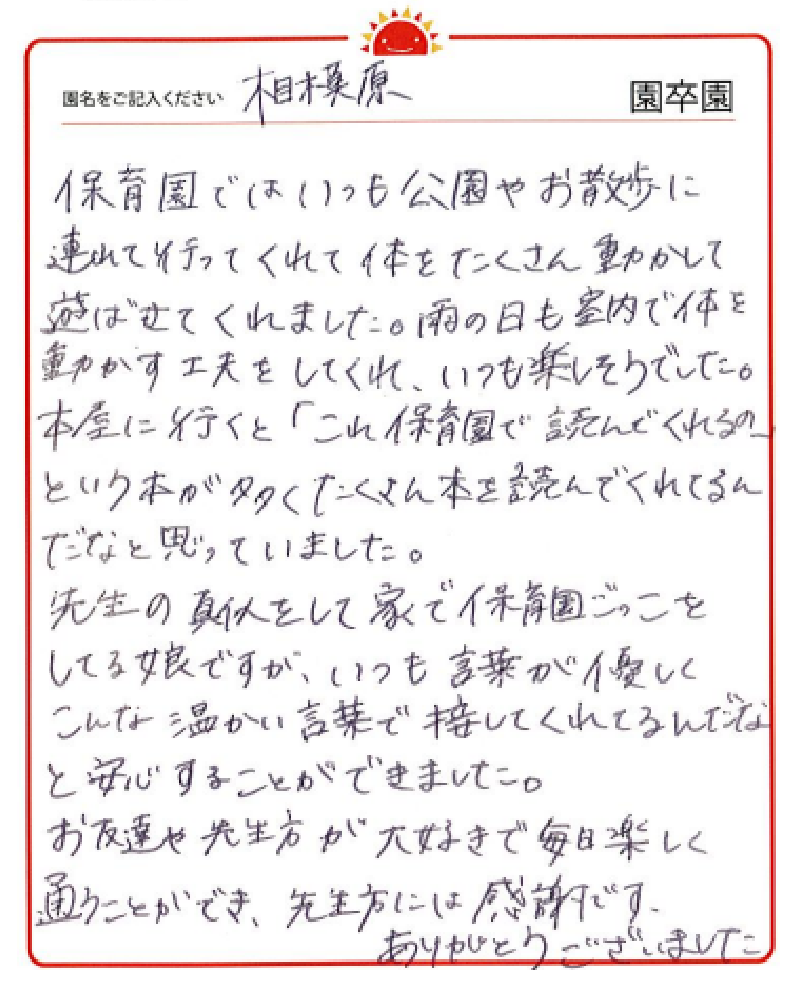 園名をご記入ください 相模原 園卒園
保育園ではいつも公園やお散歩に
連れて行ってくれて体をたくさん動かして
遊ばせてくれました。雨の日も室内で体を
動かす工夫をしてくれ、いつも楽しそうでした。
本屋に行くと「これ保育園で読んでくれるの」
という本が多くたくさん本を読んでくれてるん
だなと思っていました。
先生の真似をして家で保育園ごっこを
してる娘ですが、いつも言葉が優しく
こんな温かい言葉で接してくれてるんだな
と安心することができました。
お友達や先生方が大好きで毎日楽しく
通うことができ、先生方には感謝です。
ありがとうございました